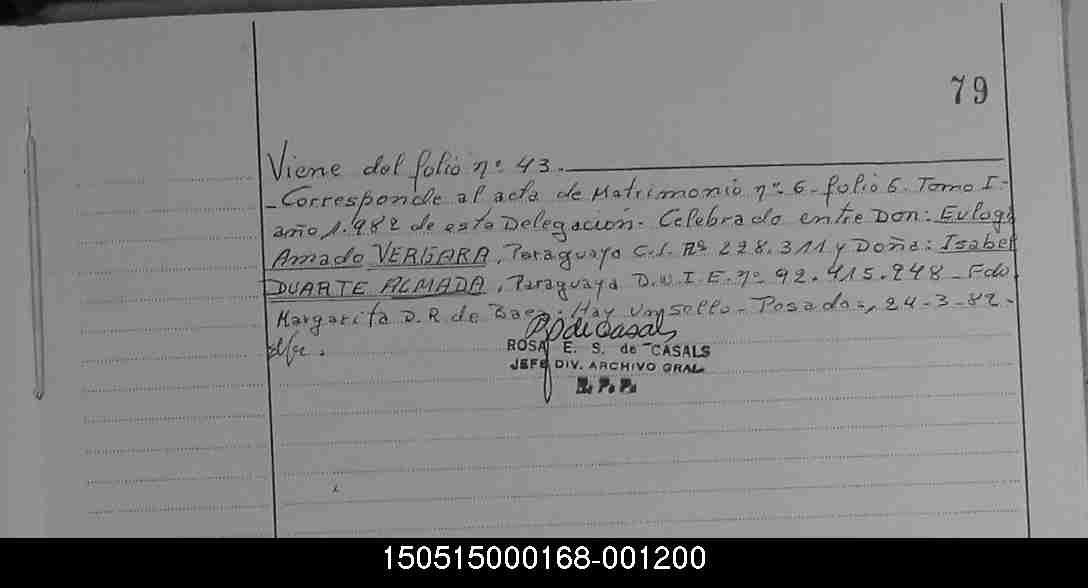 79
Viene del folio nº 43.
- Corresponde al acta de Matrimonio nº 6 - folio 6. Tomo I -
año 1.982 de esta Delegación - Celebrado entre Don: Eulogi
Amado VERGARA, Paraguayo C.I. Nº 228.311 y Doña: Isabel
DUARTE ALMADA, Paraguaya D.N.I.E. nº 92.415.948 - Fdo
Margarita D.R. de Baez. Hay Un sello - Posadas, 24-3-82 -
ROSA E. S. de CASALS
JEFE DIV. ARCHIVO GRAL.
R. P. P.
150515000168-001200